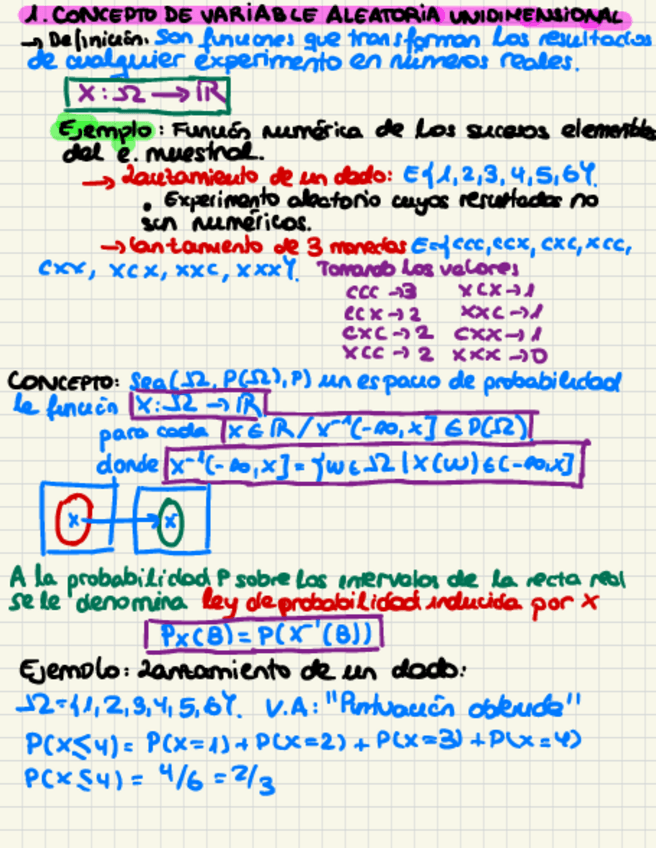 1. CONCEPTO DE VARIABLE ALEATORIA UNIDIMENSIONAL
→ Definición: Son funciones que transforman los resultados
de cualquier experimento en números reales.
X: Ω → ℝ
Ejemplo: Función numérica de los sucesos elementales
del e. muestral.
→ Lanzamiento de un dado: E{1,2,3,4,5,6}.
• Experimento aleatorio cuyos resultados no
son numéricos.
→ Lanzamiento de 3 monedas E={ccc, ccx, cxc, xcc,
cxx, xcx, xxc, xxx}. Tomando los valores
ccc → 3 xcx → 1
ccx → 2 xxc → 1
cxc → 2 cxx → 1
xcc → 2 xxx → 0
CONCEPTO: Sea (Ω, P(Ω), P) un espacio de probabilidad
la función X: Ω → ℝ
para cada x ∈ ℝ / X⁻¹(-∞, x] ∈ P(Ω)
donde X⁻¹(-∞, x] = {w ∈ Ω | X(w) ∈ (-∞, x]
x x
A la probabilidad P sobre los intervalos de la recta real
se le denomina ley de probabilidad inducida por X
Px(B) = P(X⁻¹(B))
Ejemplo: Lanzamiento de un dado:
Ω={1,2,3,4,5,6}. V.A: "Puntuación obtenida"
P(X≤4) = P(X=1) + P(X=2) + P(X=3) + P(X=4)
P(X≤4) = 4/6 = 2/3